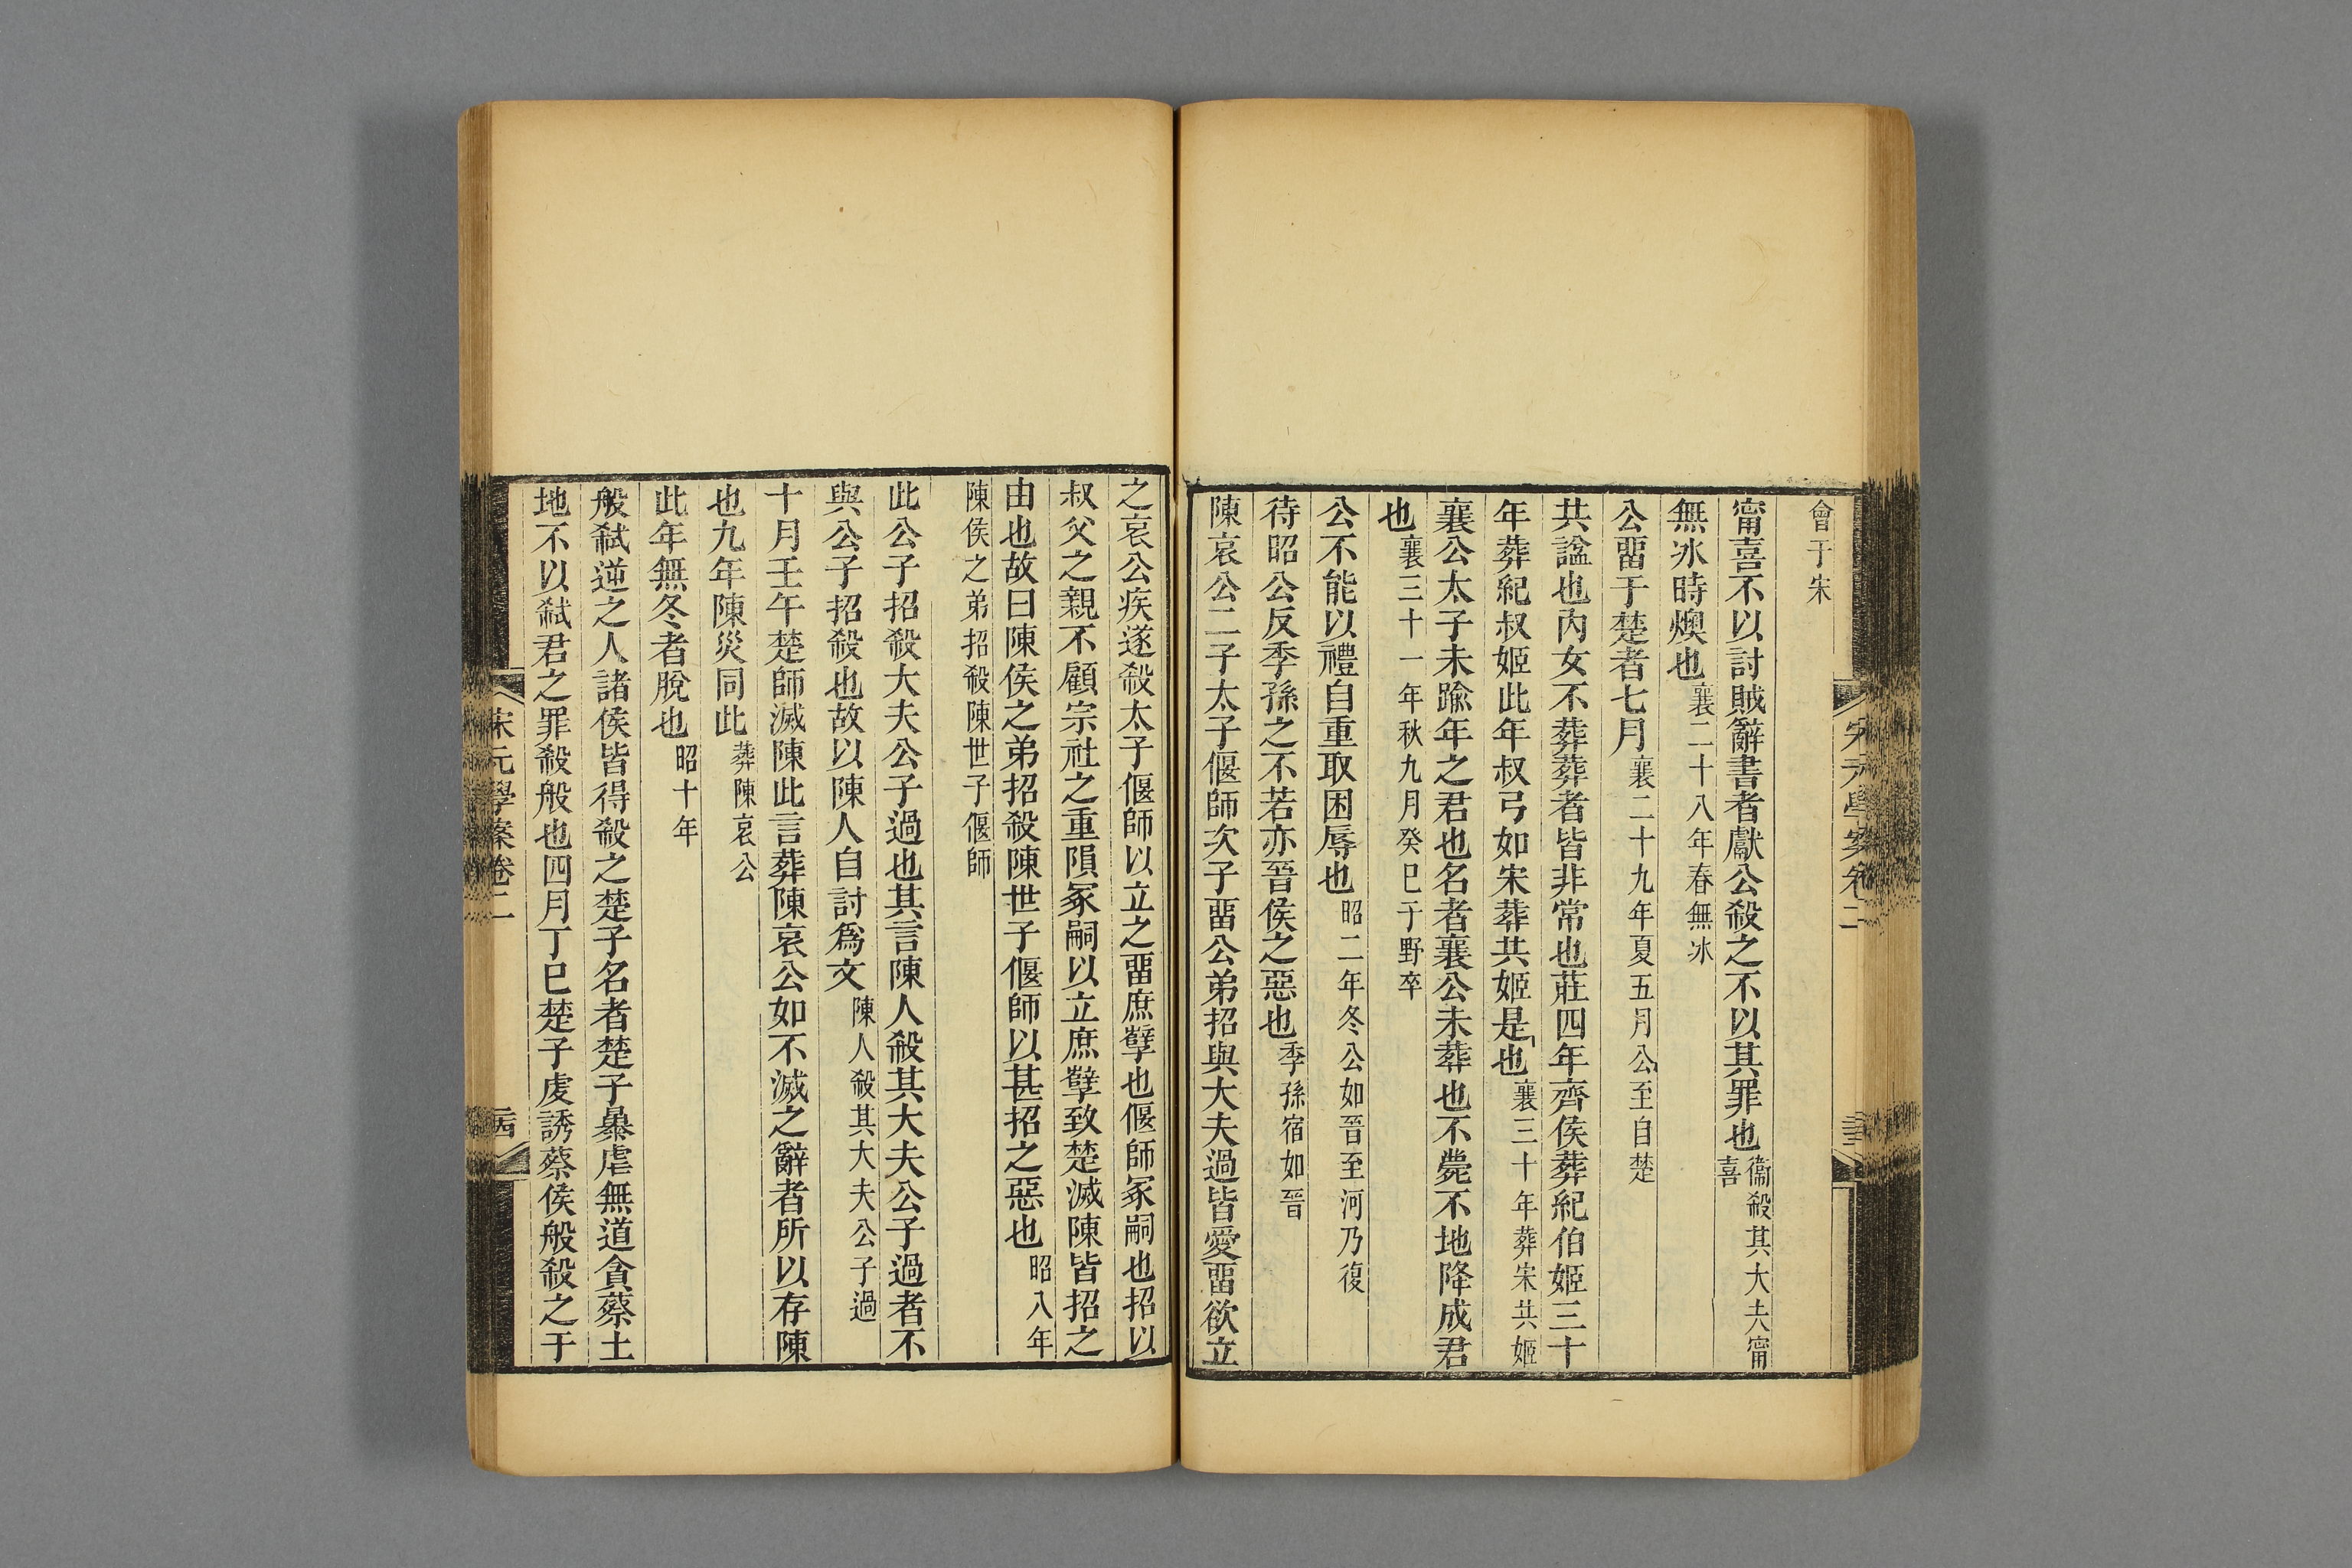 會于宋
甯喜不以討賊辭書者獻公殺之不以其罪也衞殺其大夫甯喜
無冰時燠也襄二十八年春無冰
公畱于楚者七月襄二十九年夏五月公至自楚
共諡也內女不葬葬者皆非常也莊四年齊侯葬紀伯姬三十
年葬紀叔姬此年叔弓如宋葬共姬是也襄三十年葬宋共姬
襄公太子未踰年之君也名者襄公未葬也不薨不地降成君
也襄三十一年秋九月癸巳子野卒
公不能以禮自重取困辱也昭二年冬公如晉至河乃復
待昭公反季孫之不若亦晉侯之惡也季孫宿如晉
陳哀公二子太子偃師次子畱公弟招與大夫過皆愛畱欲立
之哀公疾遂殺太子偃師以立之畱庶孽也偃師冢嗣也招以
叔父之親不顧宗社之重隕冢嗣以立庶孽致楚滅陳皆招之
由也故曰陳侯之弟招殺陳世子偃師以甚招之惡也昭八年
陳侯之弟招殺陳世子偃師
此公子招殺大夫公子過也其言陳人殺其大夫公子過者不
與公子招殺也故以陳人自討爲文陳人殺其大夫公子過
十月壬午楚師滅陳此言葬陳哀公如不滅之辭者所以存陳
也九年陳災同此葬陳哀公
此年無冬者脫也昭十年
般弑逆之人諸侯皆得殺之楚子名者楚子暴虐無道貪蔡土
地不以弑君之罪殺般也四月丁巳楚子虔誘蔡侯般殺之于
宋元學案卷二